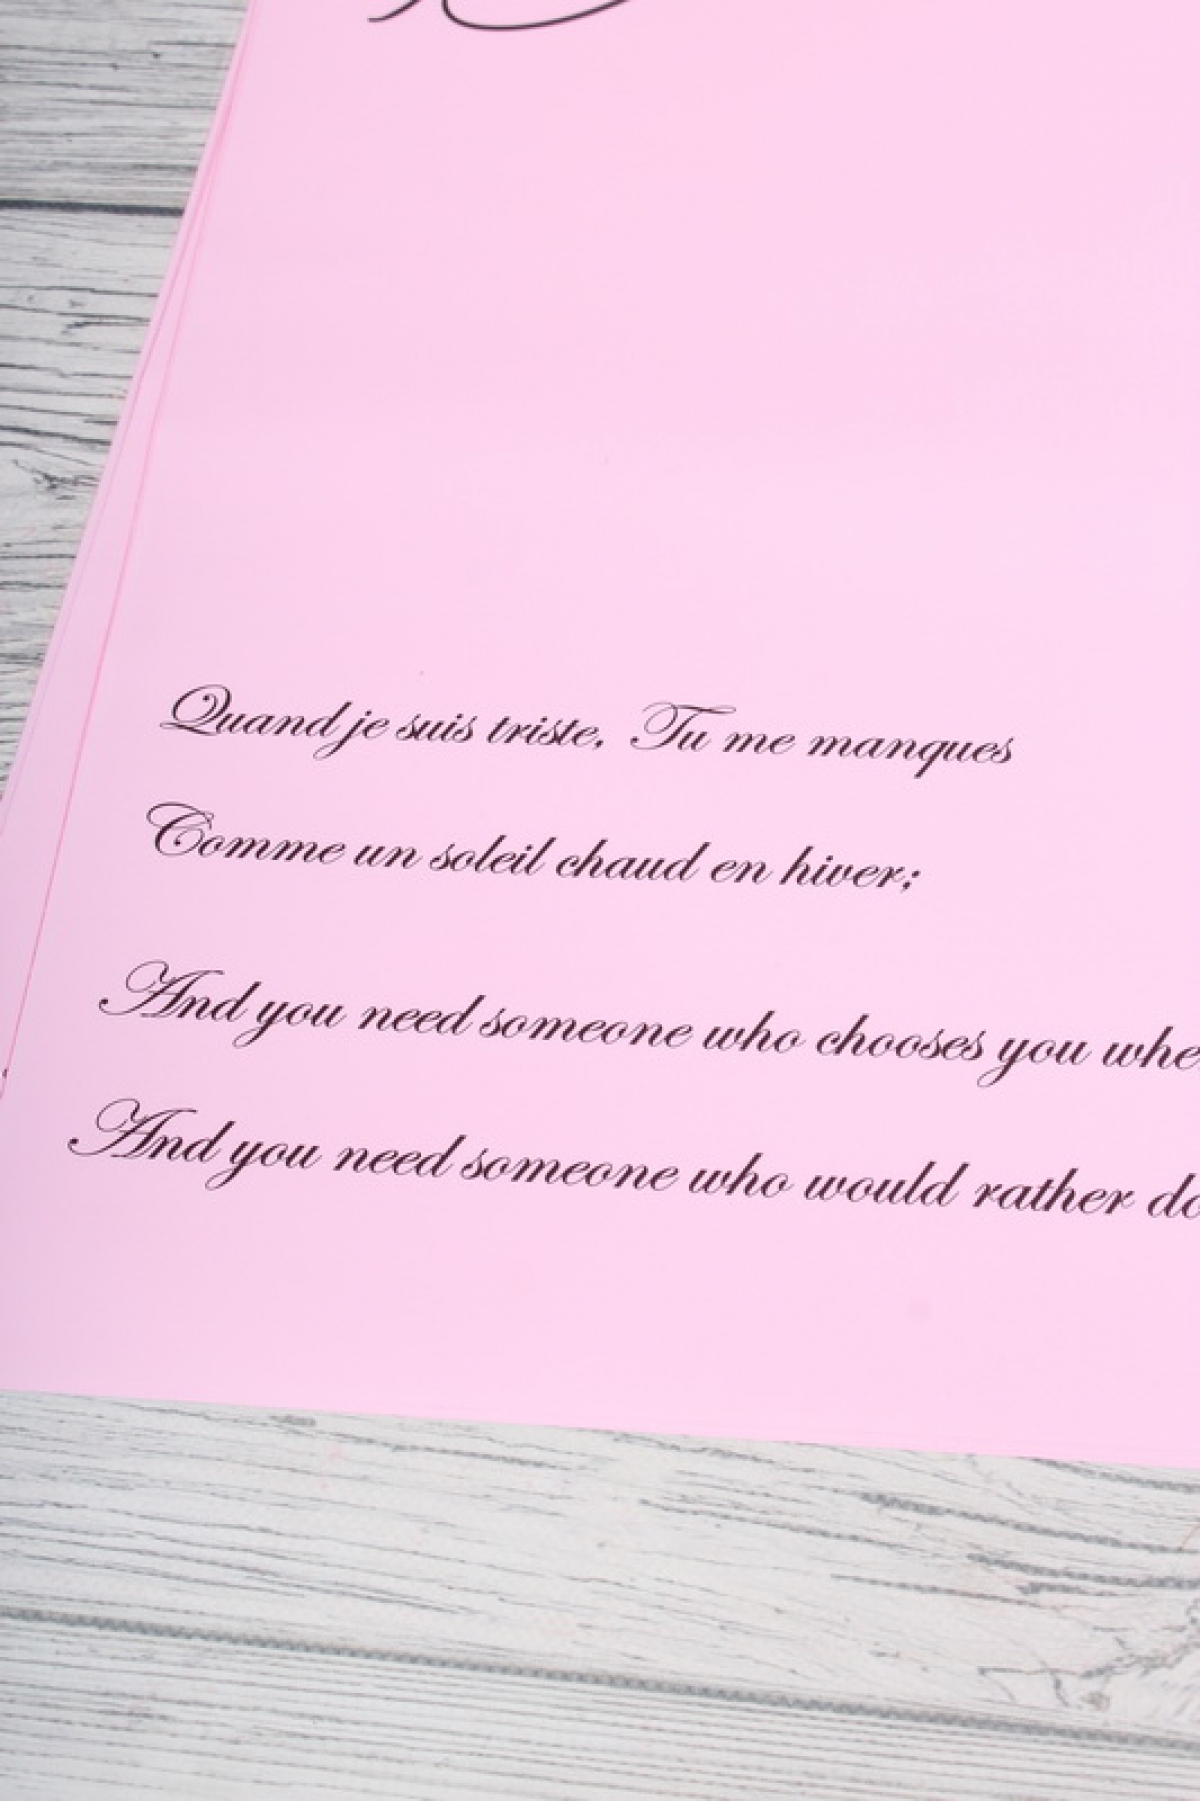 Quand je suis triste, Tu me manques
Comme un soleil chaud en hiver;
And you need someone who chooses you
And you need someone who would rather